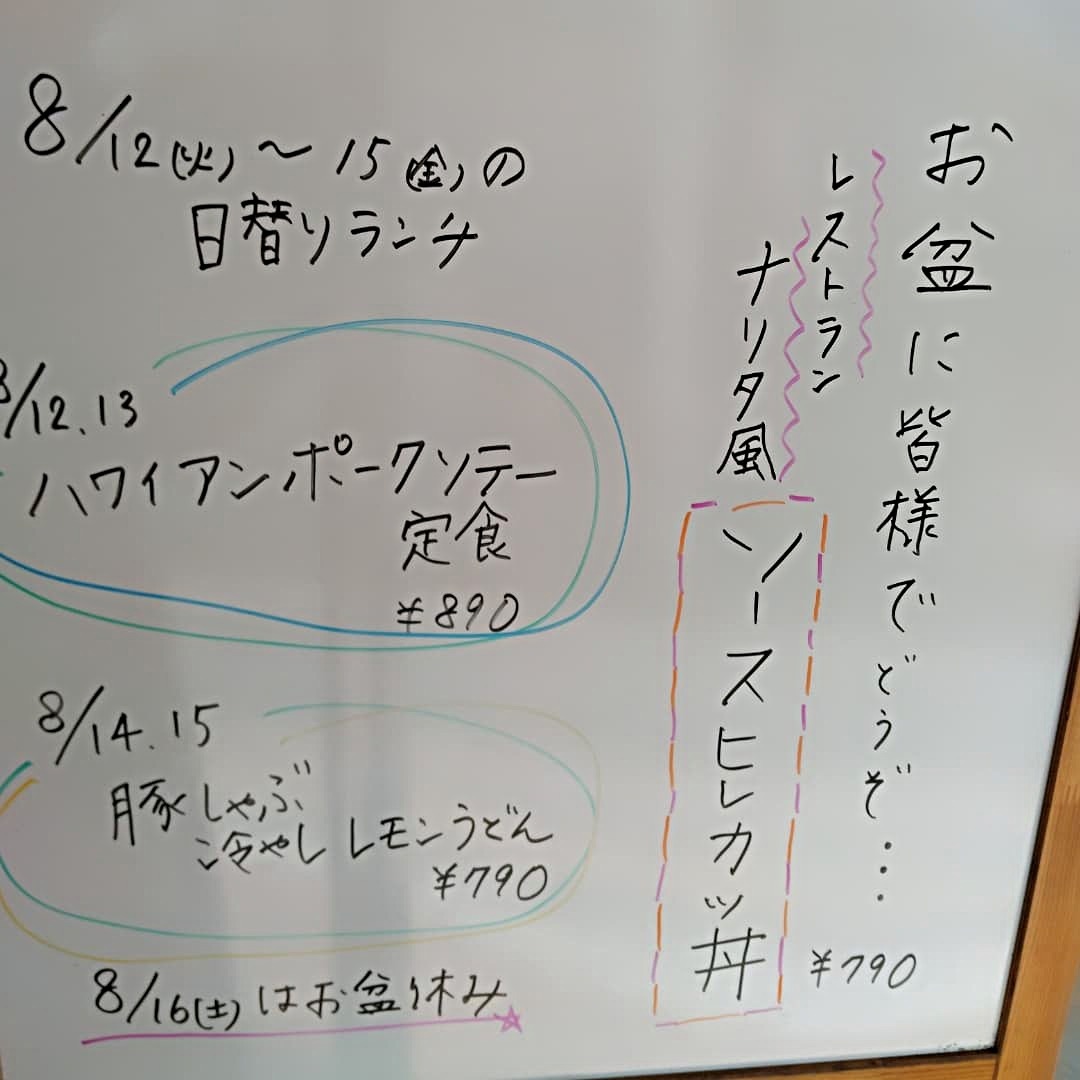 お盆に皆様でどうぞ…
レストラン
ナリタ風
ソースヒレカツ丼
¥790
8/12(火)～15(金)の
日替りランチ
8/12.13
ハワイアンポークソテー
定食
¥890
8/14.15
豚しゃぶ
冷やしレモンうどん
¥790
8/16(土)はお盆休み